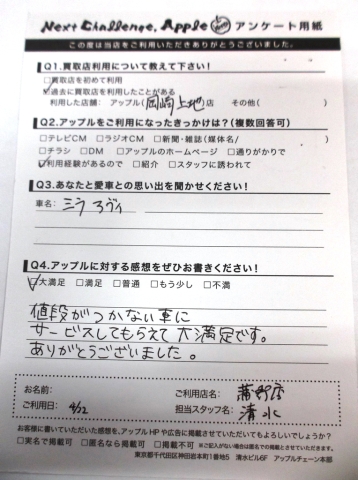 Next Challenge, Apple アンケート用紙
この度は当店をご利用いただきありがとうございました。
Q1.買取店利用について教えて下さい!
□買取店を初めて利用
☑過去に買取店を利用したことがある
利用した店舗: アップル(岡崎上地)店 その他( )
Q2.アップルをご利用になったきっかけは?(複数回答可)
□テレビCM □ラジオCM □新聞・雑誌(媒体名/ )
□チラシ □DM □アップルのホームページ □通りがかりで
☑利用経験があるので □紹介 □スタッフに誘われて
Q3.あなたと愛車との思い出を聞かせください!
車名: ミラ
Q4.アップルに対する感想をぜひお書きください!
☑大満足 □満足 □普通 □もう少し □不満
値段がつかない車に
サービスしてもらえて大満足です。
ありがとうございました。
お名前: ご利用店名:
ご利用日: 担当スタッフ名: 清水
お客様に書いていただいた感想を、アップルHPや広告に掲載させていただいてもよろしいでしょうか?
□実名で掲載可 □匿名なら掲載可 □掲載不可 ※ご記入がない場合は匿名での掲載とさせていただきます。
東京都千代田区神田岩本町1番地5 清水ビル6F アップルチェーン本部